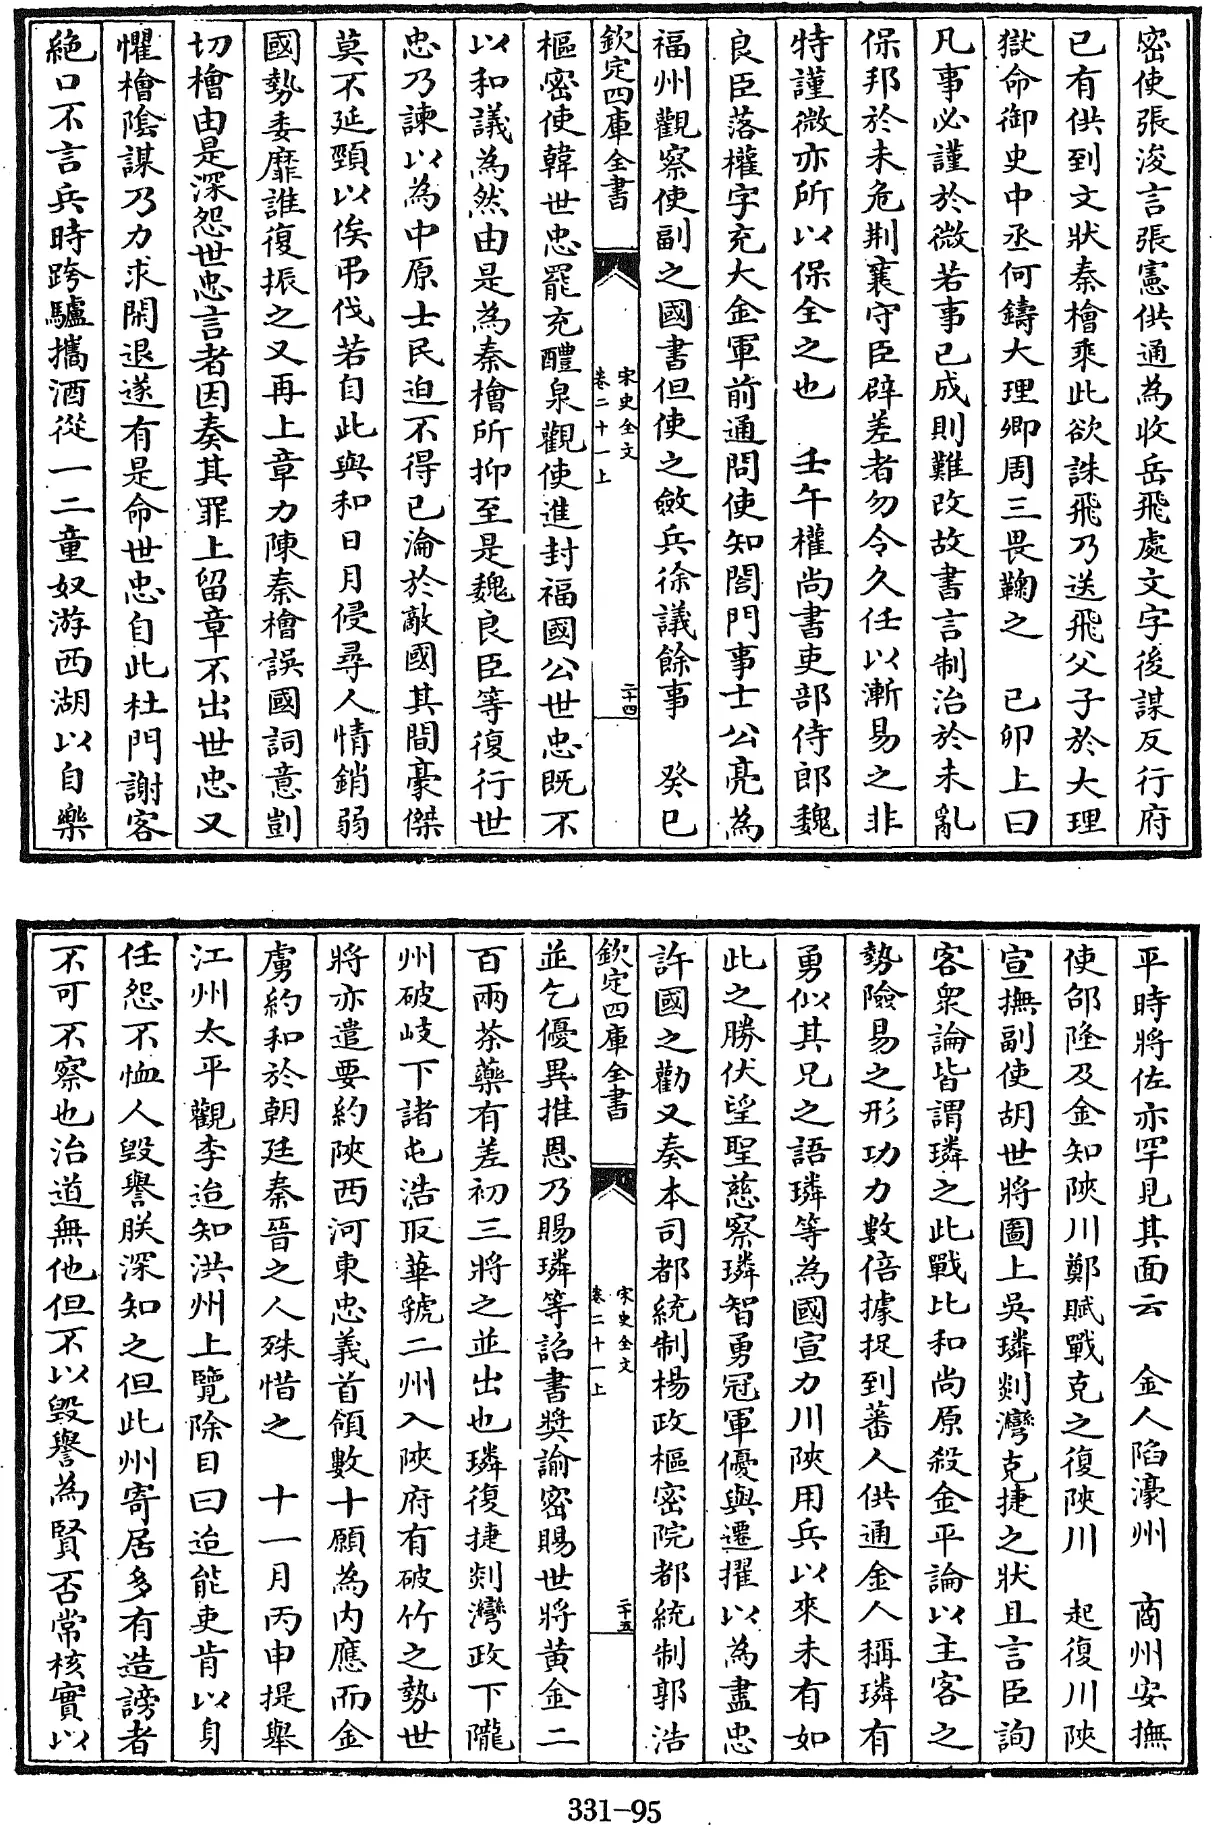 密使張浚言張憲供通為收岳飛處文字後謀反行府
已有供到文狀秦檜乘此欲誅飛乃送飛父子於大理
獄命御史中丞何鑄大理卿周三畏鞠之　己卯上曰
凡事必謹於微若事已成則難改故書言制治於未亂
保邦於未危荆襄守臣辟差者勿令久任以漸易之非
特謹微亦所以保全之也　壬午權尚書吏部侍郎魏
良臣落權字充大金軍前通問使知閤門事士公亮為
福州觀察使副之國書但使之斂兵徐議餘事　癸巳
欽定四庫全書
宋史全文
卷二十一上
二十四
樞密使韓世忠罷充醴泉觀使進封福國公世忠既不
以和議為然由是為秦檜所抑至是魏良臣等復行世
忠乃諫以為中原士民迫不得已淪於敵國其間豪傑
莫不延頸以俟弔伐若自此與和日月侵尋人情銷弱
國勢委靡誰復振之又再上章力陳秦檜誤國詞意剴
切檜由是深怨世忠言者因奏其罪上留章不出世忠又
懼檜陰謀乃力求閑退遂有是命世忠自此杜門謝客
絶口不言兵時跨驢攜酒從一二童奴游西湖以自樂
平時將佐亦罕見其面云　金人陷濠州　商州安撫
使邵隆及金知陝川鄭賦戰克之復陝川　起復川陝
宣撫副使胡世將圖上吳璘剡灣克捷之狀且言臣詢
客衆論皆謂璘之此戰比和尚原殺金平論以主客之
勢險易之形功力數倍據捉到蕃人供通金人稱璘有
勇似其兄之語璘等為國宣力川陝用兵以來未有如
此之勝伏望聖慈察璘智勇冠軍優與遷擢以為盡忠
許國之勸又奏本司都統制楊政樞密院都統制郭浩
欽定四庫全書
宋史全文
卷二十一上
二十五
並乞優異推恩乃賜璘等詔書奬諭密賜世將黄金二
百兩茶藥有差初三將之並出也璘復捷剡灣政下隴
州破岐下諸屯浩取華虢二州入陝府有破竹之勢世
將亦遣要約陝西河東忠義首領數十願為内應而金
虜約和於朝廷秦晉之人殊惜之　十一月丙申提舉
江州太平觀李迨知洪州上覽除目曰迨能吏肯以身
任怨不恤人毀譽朕深知之但此州寄居多有造謗者
不可不察也治道無他但不以毀譽為賢否常核實以
331-95